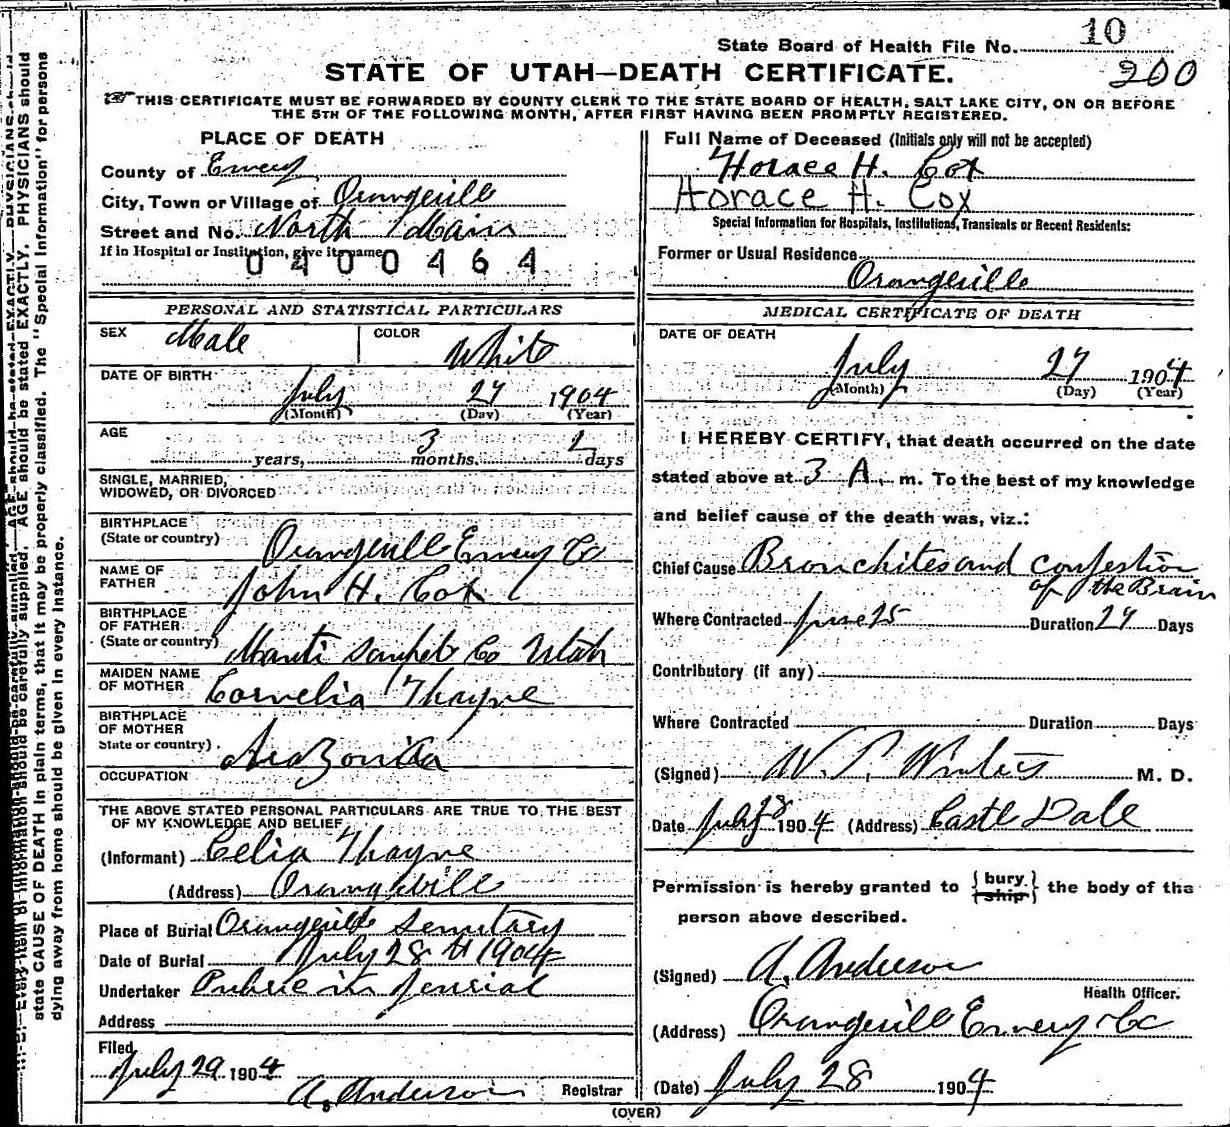 State Board of Health File No. 10
200
STATE OF UTAH—DEATH CERTIFICATE.
THIS CERTIFICATE MUST BE FORWARDED BY COUNTY CLERK TO THE STATE BOARD OF HEALTH, SALT LAKE CITY, ON OR BEFORE
THE 5TH OF THE FOLLOWING MONTH, AFTER FIRST HAVING BEEN PROMPTLY REGISTERED.
PLACE OF DEATH
County of Emery
City, Town or Village of Orangeville
Street and No. North Main
If in Hospital or Institution, give its name
0400464
PERSONAL AND STATISTICAL PARTICULARS
SEX Male COLOR White
DATE OF BIRTH
July 27 1904
(Month) (Day) (Year)
AGE
years, 3 months. 2 days
SINGLE, MARRIED,
WIDOWED, OR DIVORCED
BIRTHPLACE
(State or country) Orangeville Emery Co
NAME OF
FATHER John H. Cox
BIRTHPLACE
OF FATHER
(State or country) Manti Sanpete Co Utah
MAIDEN NAME
OF MOTHER Cornelia Thayne
BIRTHPLACE
OF MOTHER
State or country)
OCCUPATION
THE ABOVE STATED PERSONAL PARTICULARS ARE TRUE TO THE BEST
OF MY KNOWLEDGE AND BELIEF
(Informant) Celia Thayne
(Address) Orangeville
Place of Burial Orangeville Semitary
Date of Burial July 28 1904
Undertaker
Address
Filed
July 29 1904
A. Anderson Registrar
Full Name of Deceased (Initials only will not be accepted)
Horace H. Cox
Horace H. Cox
Special Information for Hospitals, Institutions, Transients or Recent Residents:
Former or Usual Residence
Orangeville
MEDICAL CERTIFICATE OF DEATH
DATE OF DEATH
July 27 1904
(Month) (Day) (Year)
I HEREBY CERTIFY, that death occurred on the date
stated above at 3 A. m. To the best of my knowledge
and belief cause of the death was, viz.:
Chief Cause Bronchites and conjestion
of the Brain
Where Contracted June 25 Duration 27 Days
Contributory (if any)
Where Contracted Duration Days
(Signed) M. D.
Date July 1904 (Address) Castle Dale
Permission is hereby granted to { bury
ship } the body of the
person above described.
(Signed) A. Anderson
Health Officer.
(Address) Orangeville Emery Co
(Date) July 28 1904
(OVER)
AGE should be stated EXACTLY. PHYSICIANS should
state CAUSE OF DEATH in plain terms, that it may be properly classified. The "Special Information" for persons
dying away from home should be given in every instance.